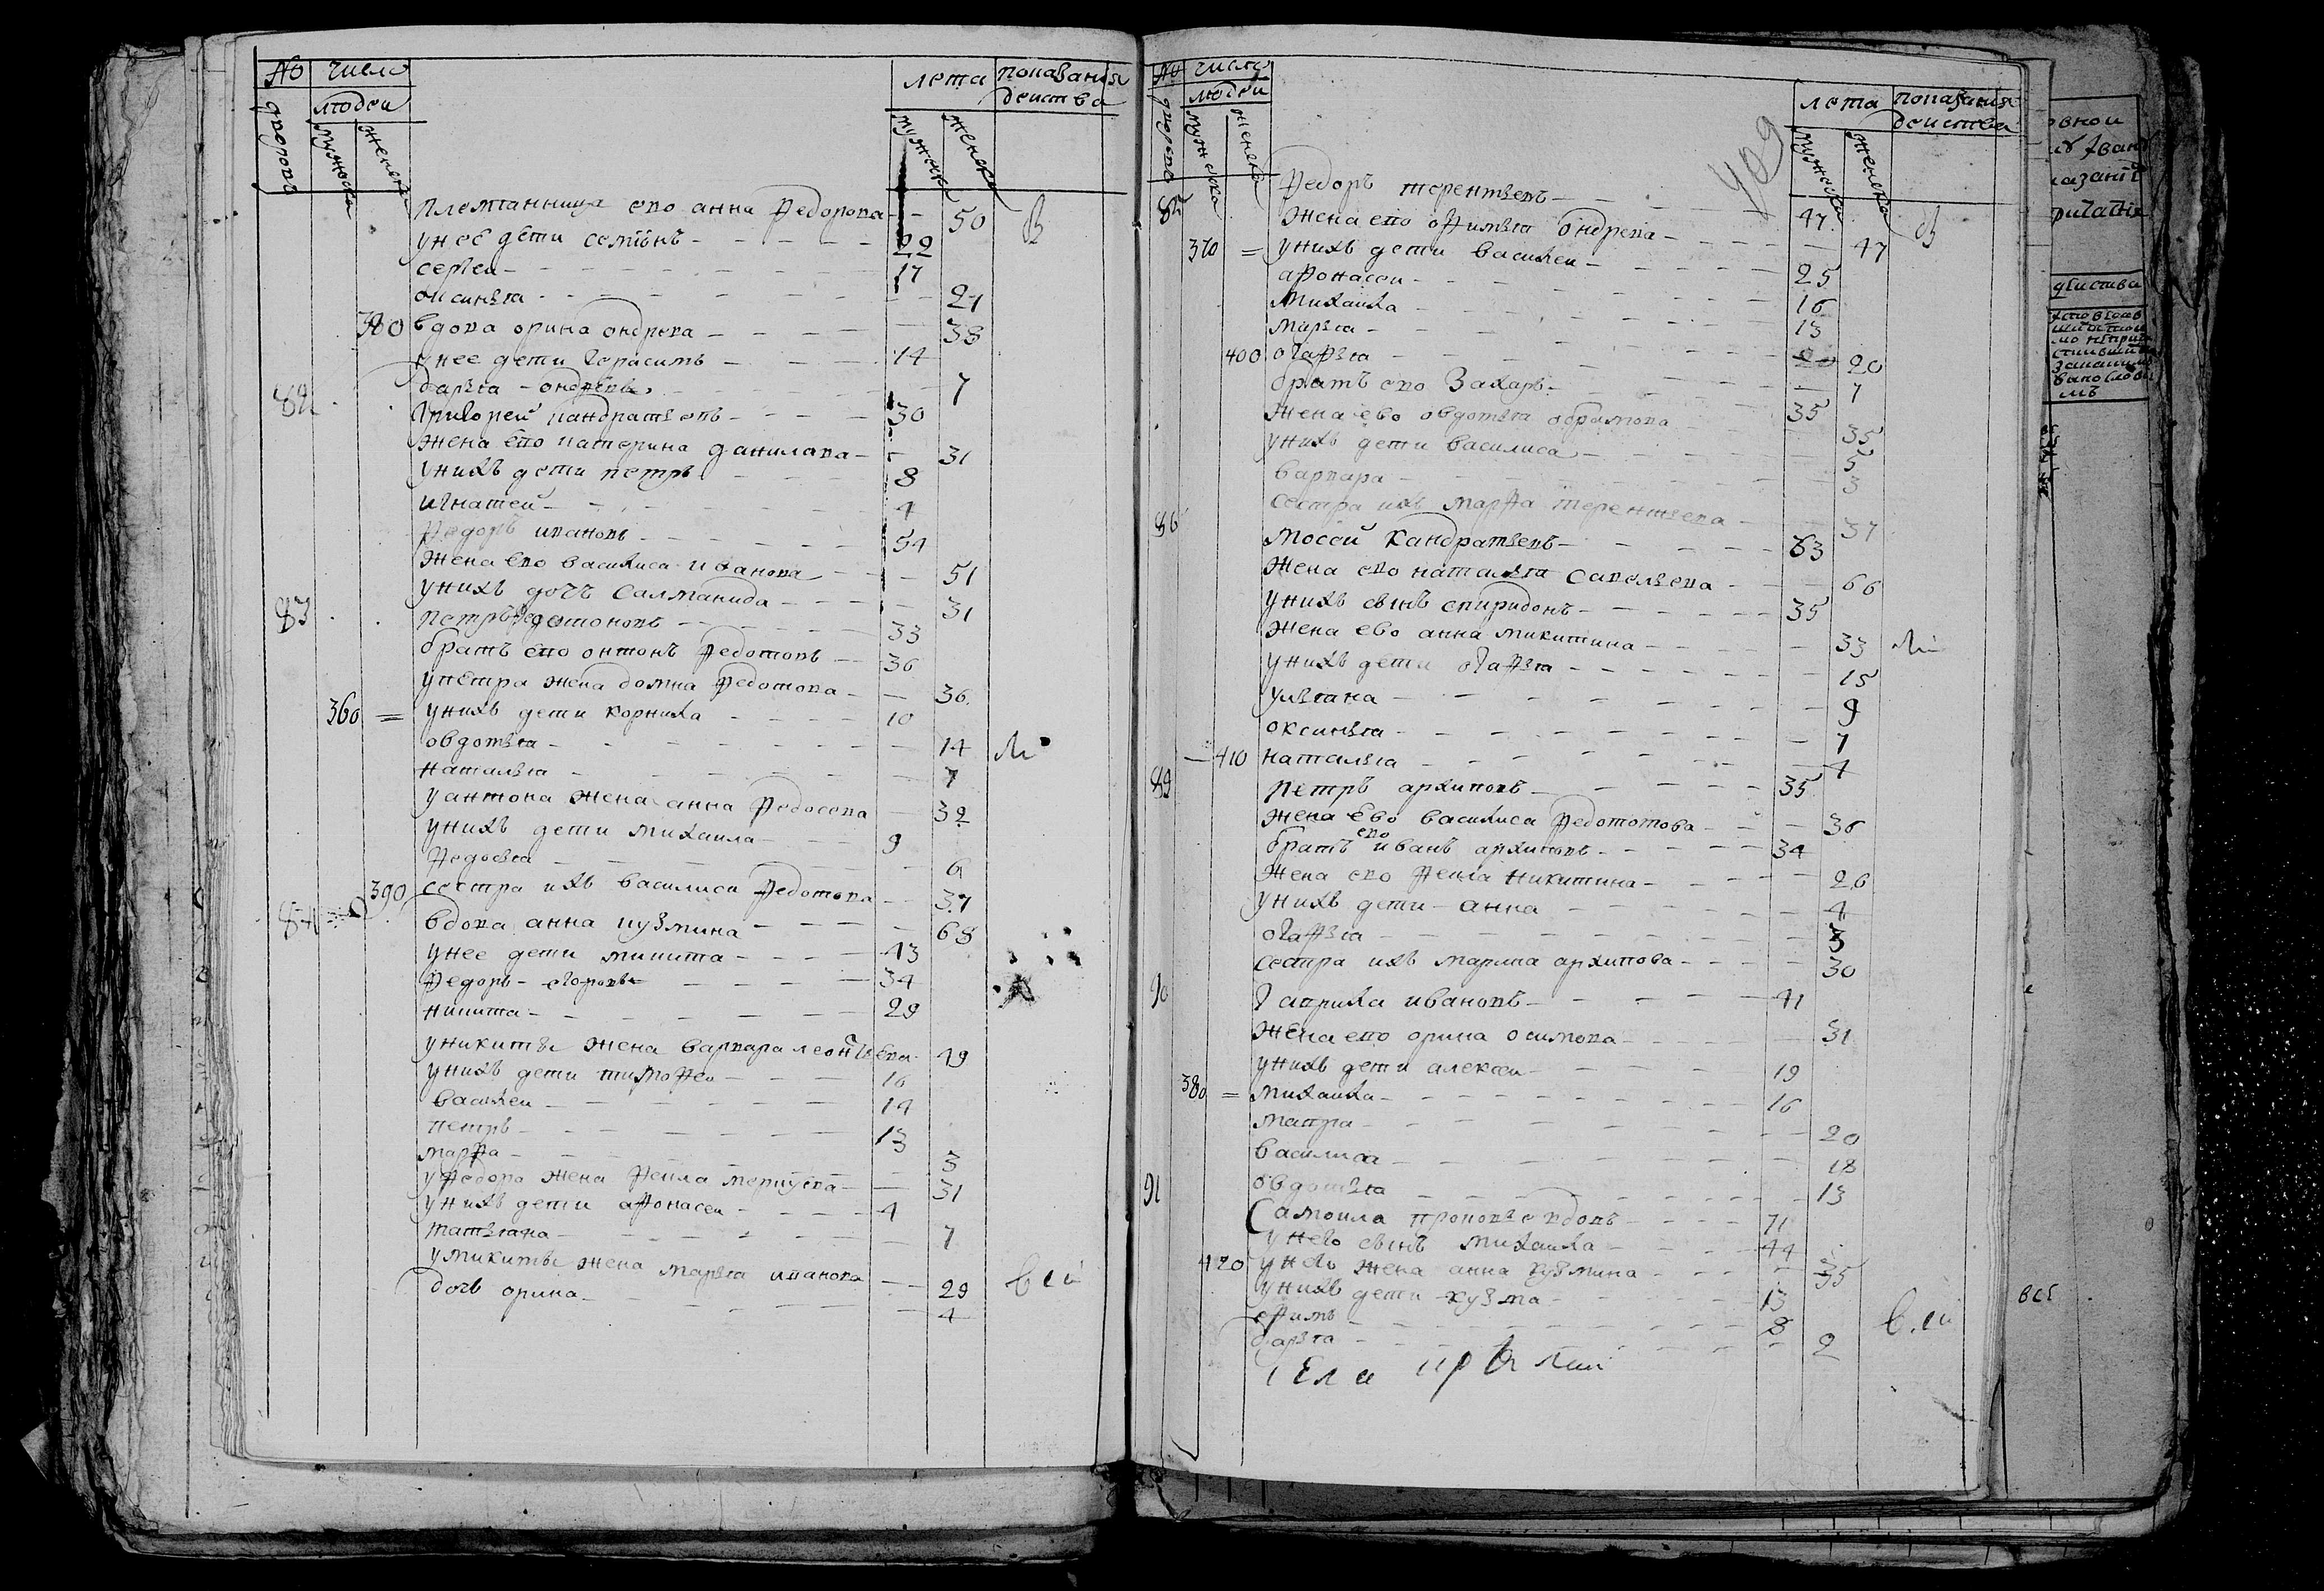 No число лета показания
людей действа
дворовъ мужеска женска мужеска женска
племянница ево анна Федорова 50 В
унее дети семионъ 22
сергеи 17
оксинья 21
380 вдова орина ондрева 38
унее дети герасимъ 14
дарья ондревы 7
82 григорей кандратьевъ 30
жена ево катерина данилова 31
унихъ дети петръ 8
игнатей 4
Федоръ ивановъ 54
жена ево василиса иванова 51
унихъ дочь салманида 31
83 петръ федотоновъ 33
братъ ево онтонъ Федотовъ 36
упетра жена домна Федотова 36
360 = унихъ дети корнила 10
овдотья 14 ли
наталья 7
уантона жена анна Федосева 32
унихъ дети михаила 9
Федосья 6
390 сестра ихъ василиса Федотова 37
84 вдова анна кузмина 68
унее дети микита 43
Федоръ егоровы 34
никита 29
уникиты жена варвара леонтьева 49
унихъ дети тимофеи 16
василеи 14
петръ 13
марфа 3
уФедора жена Фекла меркуева 31
унихъ дети афонасеи 4
татьяна 7
умикиты жена марья иванова 29 всеи
дочь орина 4
No число лета показания
людеи действа
дворовъ мужеска женска мужеска женска
409
85 Федоръ терентьевъ 47 В
жена ево офимья ондрева 47
370 = унихъ дети василеи 25
афонасеи 16
михаила 13
марья 20
400 огафья 7
братъ ево Захаръ 35
жена ево овдотья обрамова 35
унихъ дети василиса 5
варвара 3
сестра ихъ марфа терентьева 37
86 мосеи кандратьевъ 63
жена ево наталья савельева 66
унихъ сынъ спиридонъ 35
жена ево анна микитина 33 ли
унихъ дети огафья 15
ульяна 9
оксинья 7
410 наталья 4
89 петръ архиповъ 35
жена ево василиса Федототова 36
братъ ево иванъ архиповъ 34
жена ево Фекла никитина 26
унихъ дети анна 4
огафья 3
сестра ихъ марина архипова 30
90 гаврила ивановъ 41
жена ево орина осипова 31
унихъ дети алексеи 19
380 = михаила 16
мавра 20
василиса 18
овдотья 13
91 Самоила прокопьевъ вдовъ 71
унево сынъ михаила 44
420 унево жена анна кузмина 35
унихъ дети кузма 13
ефимъ 8
дарья 2 всеи
все